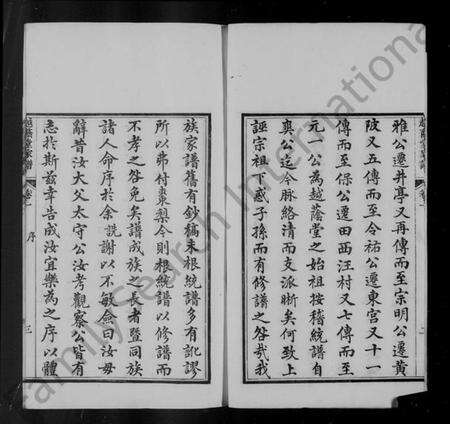 雅公遷井亭又再傳而至宗明公遷黃
陂又五傳而至今祐公遷東宮又十一
傳而至保公遷田西汪村又七傳而至
元一公為越蔭堂之始祖按稽統譜自
奐公迄今脉絡清而支派晰矣何致上
誣宗祖下惑子孫而有修譜之咎哉我
族家譜舊有鈔稿未根統譜多有訛謬
所以弗付棗梨今則根統譜以修譜而
不孝之咎免矣譜成族之長者暨同族
諸人命序於余余謝以不敏僉曰汝毋
辭昔汝大父太守公汝考觀察公皆有
志於斯茲幸告成汝宜樂為之序以體
卷一 序 三
FamilySearch International